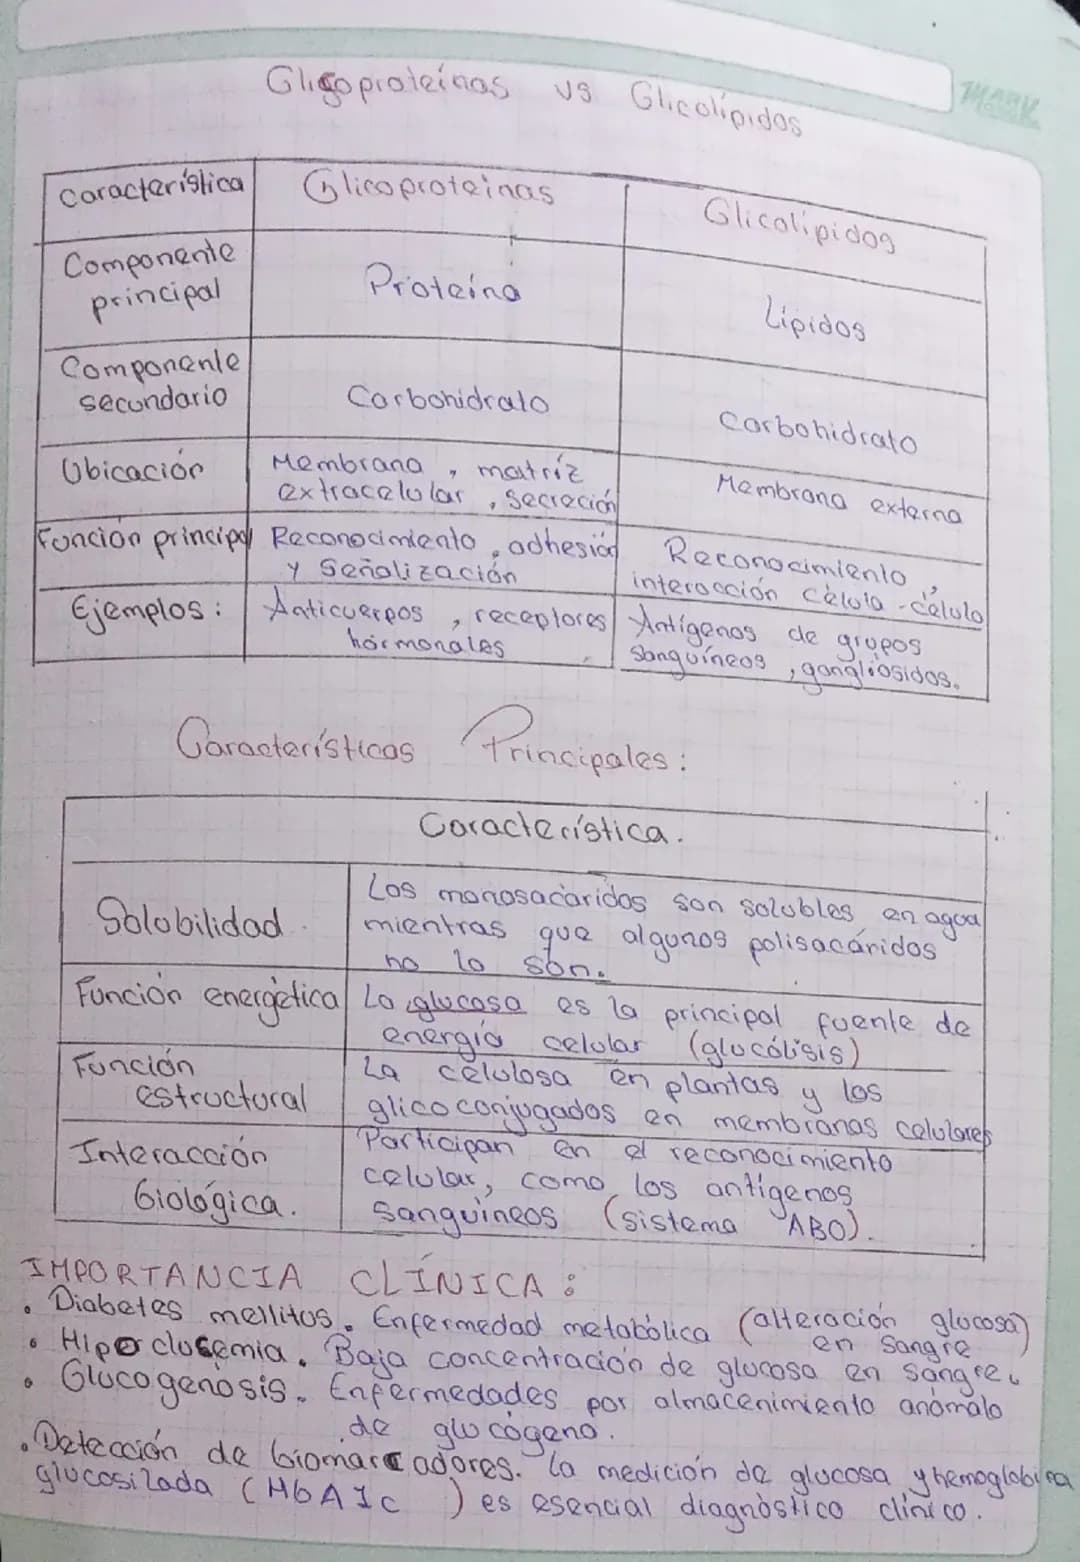 Gligoproteínas vs Glicolípidos
MARK
Característica Glicoproteinas Glicolipidos
Componente principal Proteína Lipidos
Componente secundario Carbohidrato Carbohidrato
Ubicación Membrana, matríz extracelular, secreción Membrana externa
Función principal Reconocimiento, adhesión y Señalización Reconocimiento, interacción Célula-célula
Ejemplos: Anticuerpos, receptores hormonales Antígenos de grupos Sanguíneos, gangliósidos.
Características Principales:
Característica.
Solubilidad. Los monosacáridos son solubles en agua
mientras que algunos polisacáridos
no lo son.
Función energética La glucosa es la principal fuente de
energía celular (glucólisis)
Función estructural La celulosa en plantas y los
glicoconjugados en membranas celulares
Interacción biológica. Participan en el reconocimiento
celular, como los antígenos
Sanguíneos (sistema ABO).
IMPORTANCIA CLÍNICA:
• Diabetes mellitus. Enfermedad metabólica (alteración glucosa)
en sangre
• Hipoclusemia. Baja concentración de glucosa en sangre.
• Glucogenosis. Enfermedades por almacenimiento anómalo
de glucógeno.
• Detección de biomarcadores. La medición de glucosa y hemoglobina
glucosilada (HbA1c ) es esencial diagnóstico clínico.